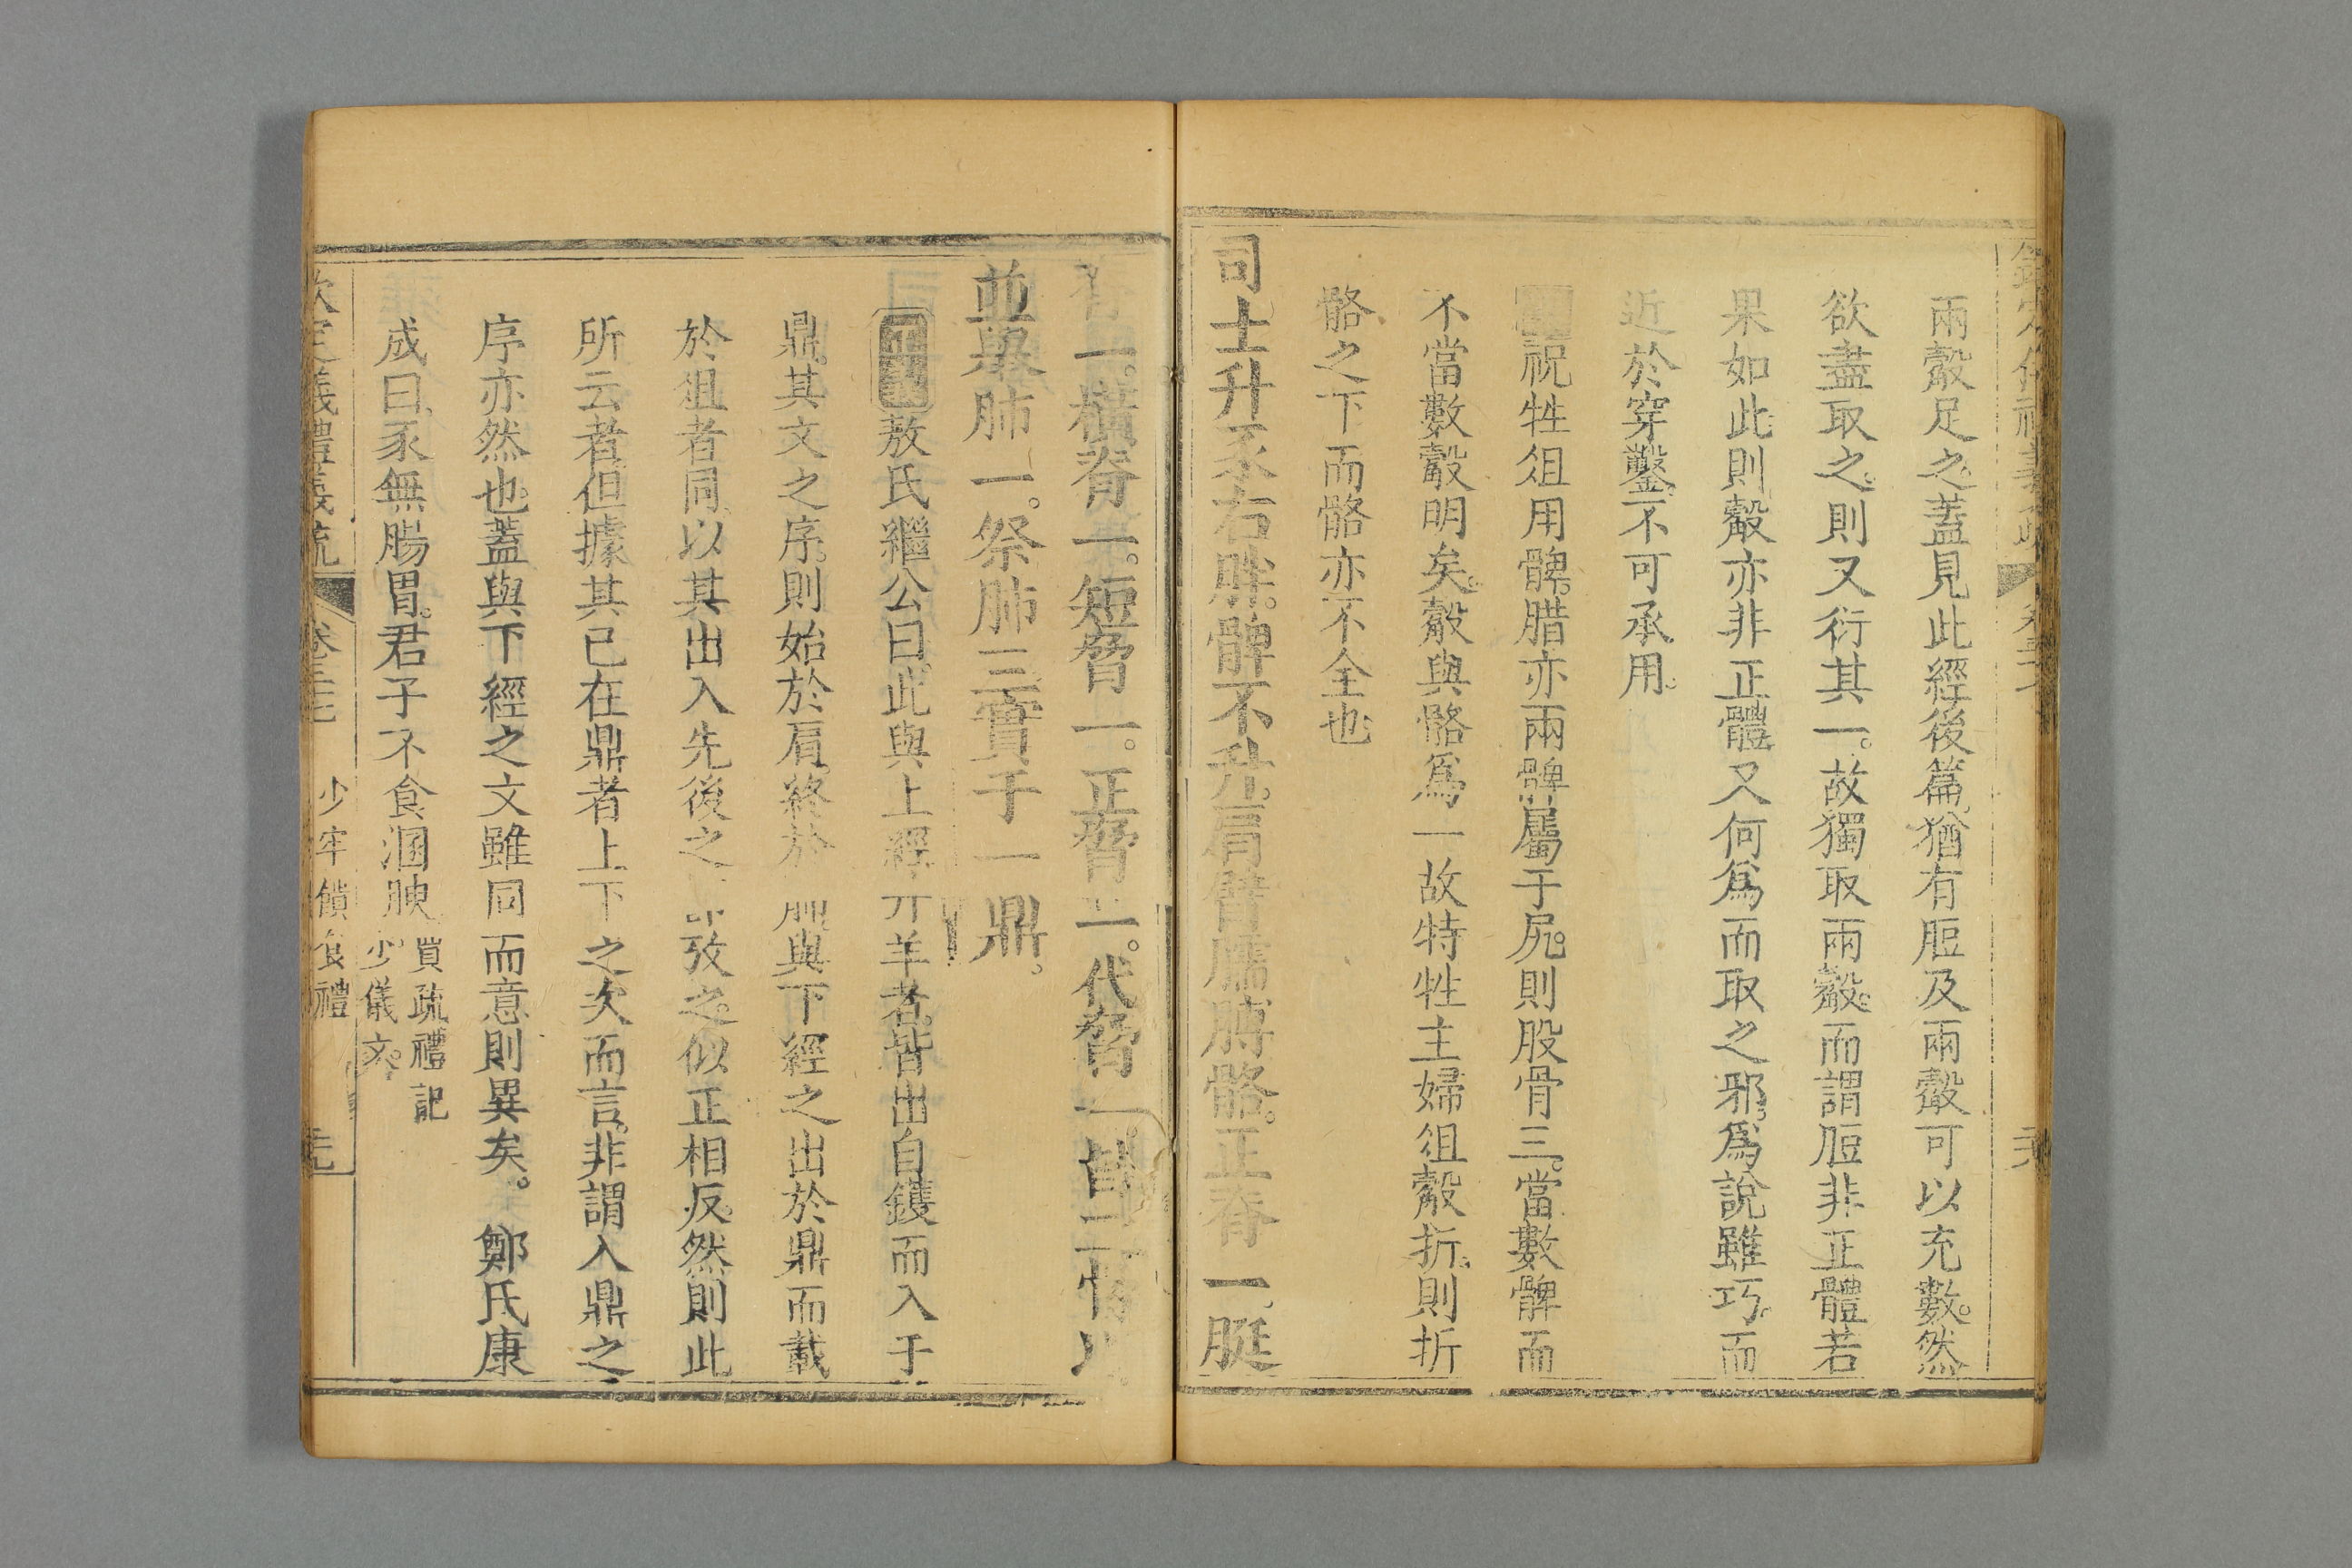 兩觳足之蓋見此經後篇猶有脰及兩觳可以充數。然
欲盡取之則又衍其一。故獨取兩觳。而謂脰非正體若
果如此則觳亦非正體又何爲而取之邪。爲說雖巧而
近於穿鑿不可承用。
祝牲俎用髀。腊亦兩髀屬于尻。則股骨三。當數髀而
不當數觳明矣。觳與骼爲一故特牲主婦俎觳折。則折
骼之下而骼亦不全也
司士升豕右胖。髀不升。肩臂臑膊骼。正脊一。脡
脊一。橫脊一。短脅一。正脅一。代脅一。皆二骨以
並。舉肺一。祭肺三。實于一鼎。
敖氏繼公曰。此與上經升羊者。皆出自鑊而入于
鼎。其文之序。則始於肩。終於 與下經之出於鼎而載
於俎者同。以其出入先後之 攷之。似正相反。然則此
所云者。但據其已在鼎者上下之次而言。非謂入鼎之
序亦然也。蓋與下經之文雖同而意則異矣。 鄭氏康
成曰。豕無腸胃。君子不食溷腴
賈疏禮記
少儀文。
欽定儀禮義疏 卷三十七 少牢饋食禮 元